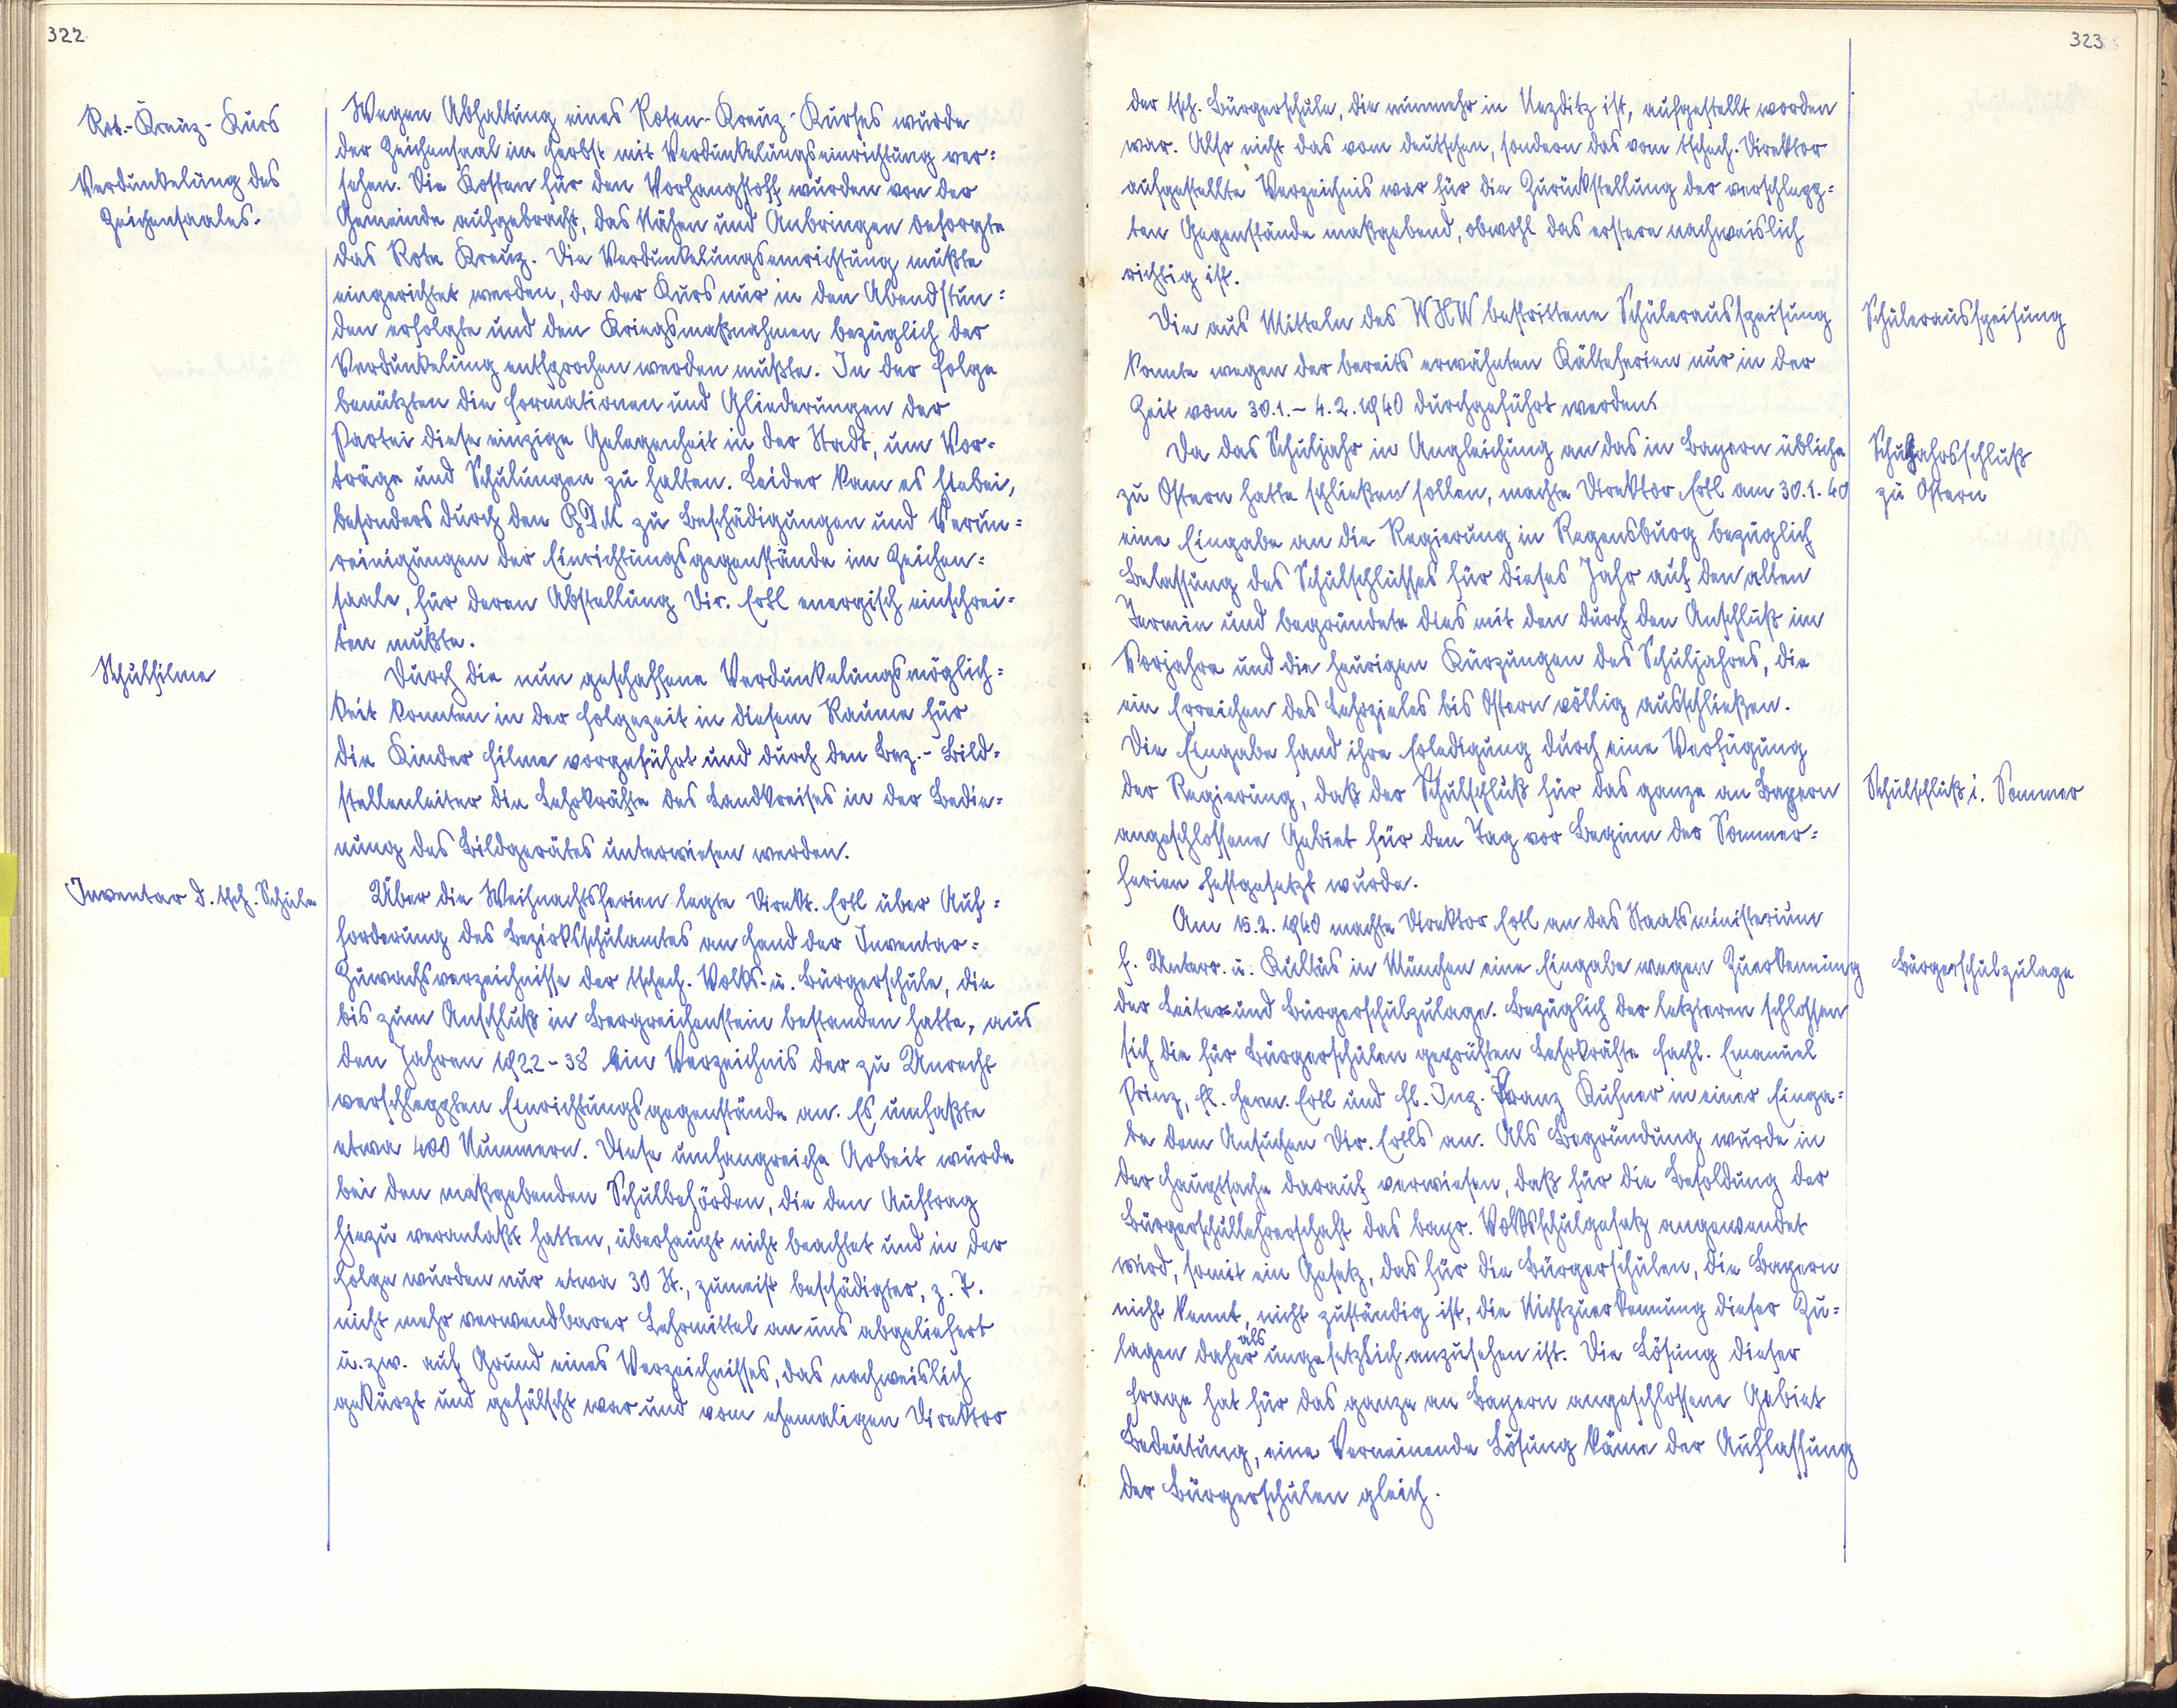 322
Rot.-Kreuz-Kurs
Verdunkelung des
Zeichensaales.
Wegen Abhaltung eines Roten-Kreuz-Kurses wurde
der Zeichensaal im Herbst mit Verdunkelungseinrichtung ver=
sehen. Die Kosten für den Vorhangstoff wurden von der
Gemeinde aufgebracht, das Nähen und Anbringen besorgte
das Rote Kreuz. Die Verdunkelungseinrichtung mußte
eingerichtet werden, da der Kurs nur in den Abendstun=
den erfolgte und den Kriegsmaßnahmen bezüglich der
Verdunkelung entsprochen werden mußte. In der Folge
benützten die Formationen und Gliederungen der
Partei diese einzige Gelegenheit in der Stadt, um Vor-
träge und Schulungen zu halten. Leider kam es hiebei,
besonders durch den BDM zu Beschädigungen und Verun=
reinigungen der Einrichtungsgegenstände im Zeichen=
saale, für deren Abstellung Dir. Ertl energisch einschrei-
ten mußte.
Schulfilme
Durch die nun geschaffene Verdunkelungsmöglich=
keit konnten in der Folgezeit in diesem Raume für
die Kinder Filme vorgeführt und durch den Bez.-Bild=
stellenleiter die Lehrkräfte des Landkreises in der Bedie=
nung des Bildgerätes unterwiesen werden.
Inventar d. tsch. Schule
Über die Weihnachtsferien legte Direkt. Ertl über Auf=
forderung des Bezirksschulamtes an Hand der Inventar=
Zuwachsverzeichnisse der tschech. Volks- u. Bürgerschule, die
bis zum Anschluß in Bergreichenstein bestanden hatte, aus
den Jahren 1922-38 ein Verzeichnis der zu Unrecht
verschleppten Einrichtungsgegenstände an. Es umfaßte
etwa 400 Nummern. Diese umfangreiche Arbeit wurde
bei den maßgebenden Schulbehörden, die den Auftrag
hiezu veranlaßt hatten, überhaupt nicht beachtet und in der
Folge wurden nur etwa 30 St., zumeist beschädigter, z. T.
nicht mehr verwendbarer Lehrmittel an uns abgeliefert
u. zw. auf Grund eines Verzeichnisses, das nachweislich
gekürzt und gefälscht war und vom ehemaligen Direktor
323
der tsch. Bürgerschule, die nunmehr in Nezditz ist, aufgestellt worden
war. Also nicht das vom deutschen, sondern das vom tschech. Direktor
aufgestellte Verzeichnis war für die Zurückstellung der verschlepp=
ten Gegenstände maßgebend, obwohl das erstere nachweislich
richtig ist.
Schülerausspeisung
Die aus Mitteln des WHW bestrittene Schülerausspeisung
konnte wegen der bereits erwähnten Kälteferien nur in der
Zeit vom 30.1. - 4.2.1940 durchgeführt werden.
Schuljahrsschluß
zu Ostern
Da das Schuljahr in Angleichung an das in Bayern übliche
zu Ostern hatte schließen sollen, machte Direktor Ertl am 30.1.40
eine Eingabe an die Regierung in Regensburg bezüglich
Belassung des Schulschlusses für dieses Jahr auf den alten
Termin und begründete dies mit den durch den Anschluß im
Vorjahre und die heurigen Kürzungen des Schuljahres, die
ein Erreichen des Lehrzieles bis Ostern völlig ausschließen.
Die Eingabe fand ihre Erledigung durch eine Verfügung
Schulschluß i. Sommer
der Regierung, daß der Schulschluß für das ganze an Bayern
angeschlossene Gebiet für den Tag vor Beginn der Sommer=
ferien festgesetzt wurde.
Am 15.2.1940 machte Direktor Ertl an das Staatsministerium
Bürgerschulzulage
f. Unterr. u. Kultus in München eine Eingabe wegen Zuerkennung
der Leiter- und Bürgerschulzulage. Bezüglich der letzteren schlossen
sich die für Bürgerschulen geprüften Lehrkräfte Fachl. Emanuel
Prinz, Fl. Herm. Ertl und Fl. Ing. Franz Kufner in einer Einga=
be dem Ansuchen Dir. Ertls an. Als Begründung wurde in
der Hauptsache darauf verwiesen, daß für die Besoldung der
Bürgerschullehrerschaft das bayr. Volksschulgesetz angewendet
wird, somit ein Gesetz, das für die Bürgerschulen, die Bayern
nicht kennt, nicht zuständig ist, die Nichtzuerkennung dieser Zu=
lagen daher als ungesetzlich anzusehen ist. Die Lösung dieser
Frage hat für das ganze an Bayern angeschlossene Gebiet
Bedeutung, eine Verneinende Lösung käme der Auflassung
der Bürgerschulen gleich.